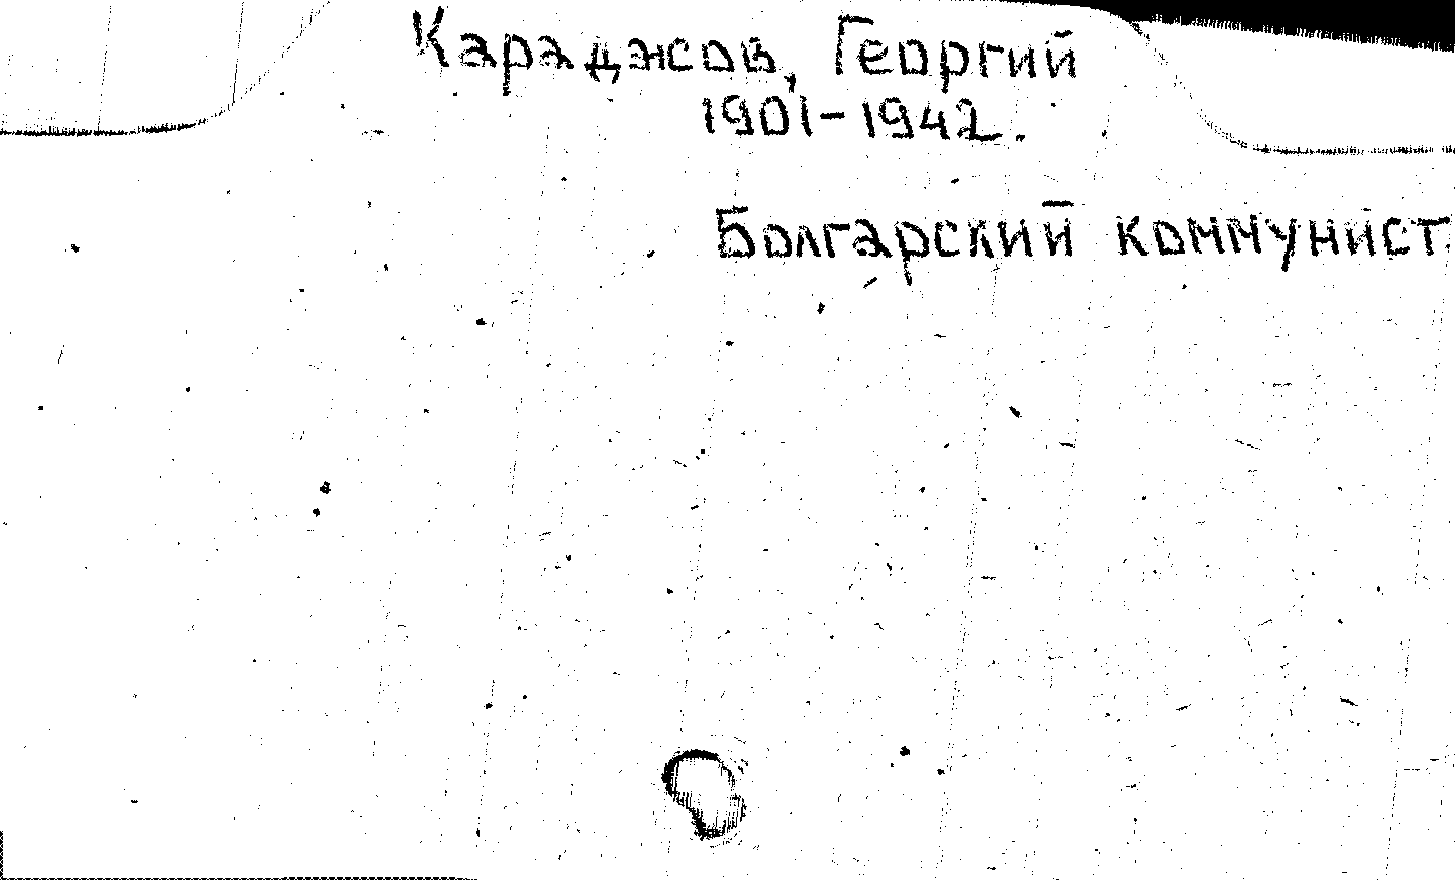 Караджов, Георгий
1901-1942.
Болгарский коммунист.